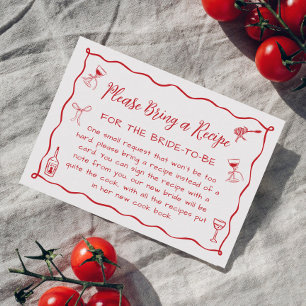 Please Bring a Recipe
FOR THE BRIDE-TO-BE
One small request that won't be too
hard, please bring a recipe instead of a
card. You can sign the recipe with a
note from you, our new bride will be
quite the cook, with all the recipes put
in her new cook book